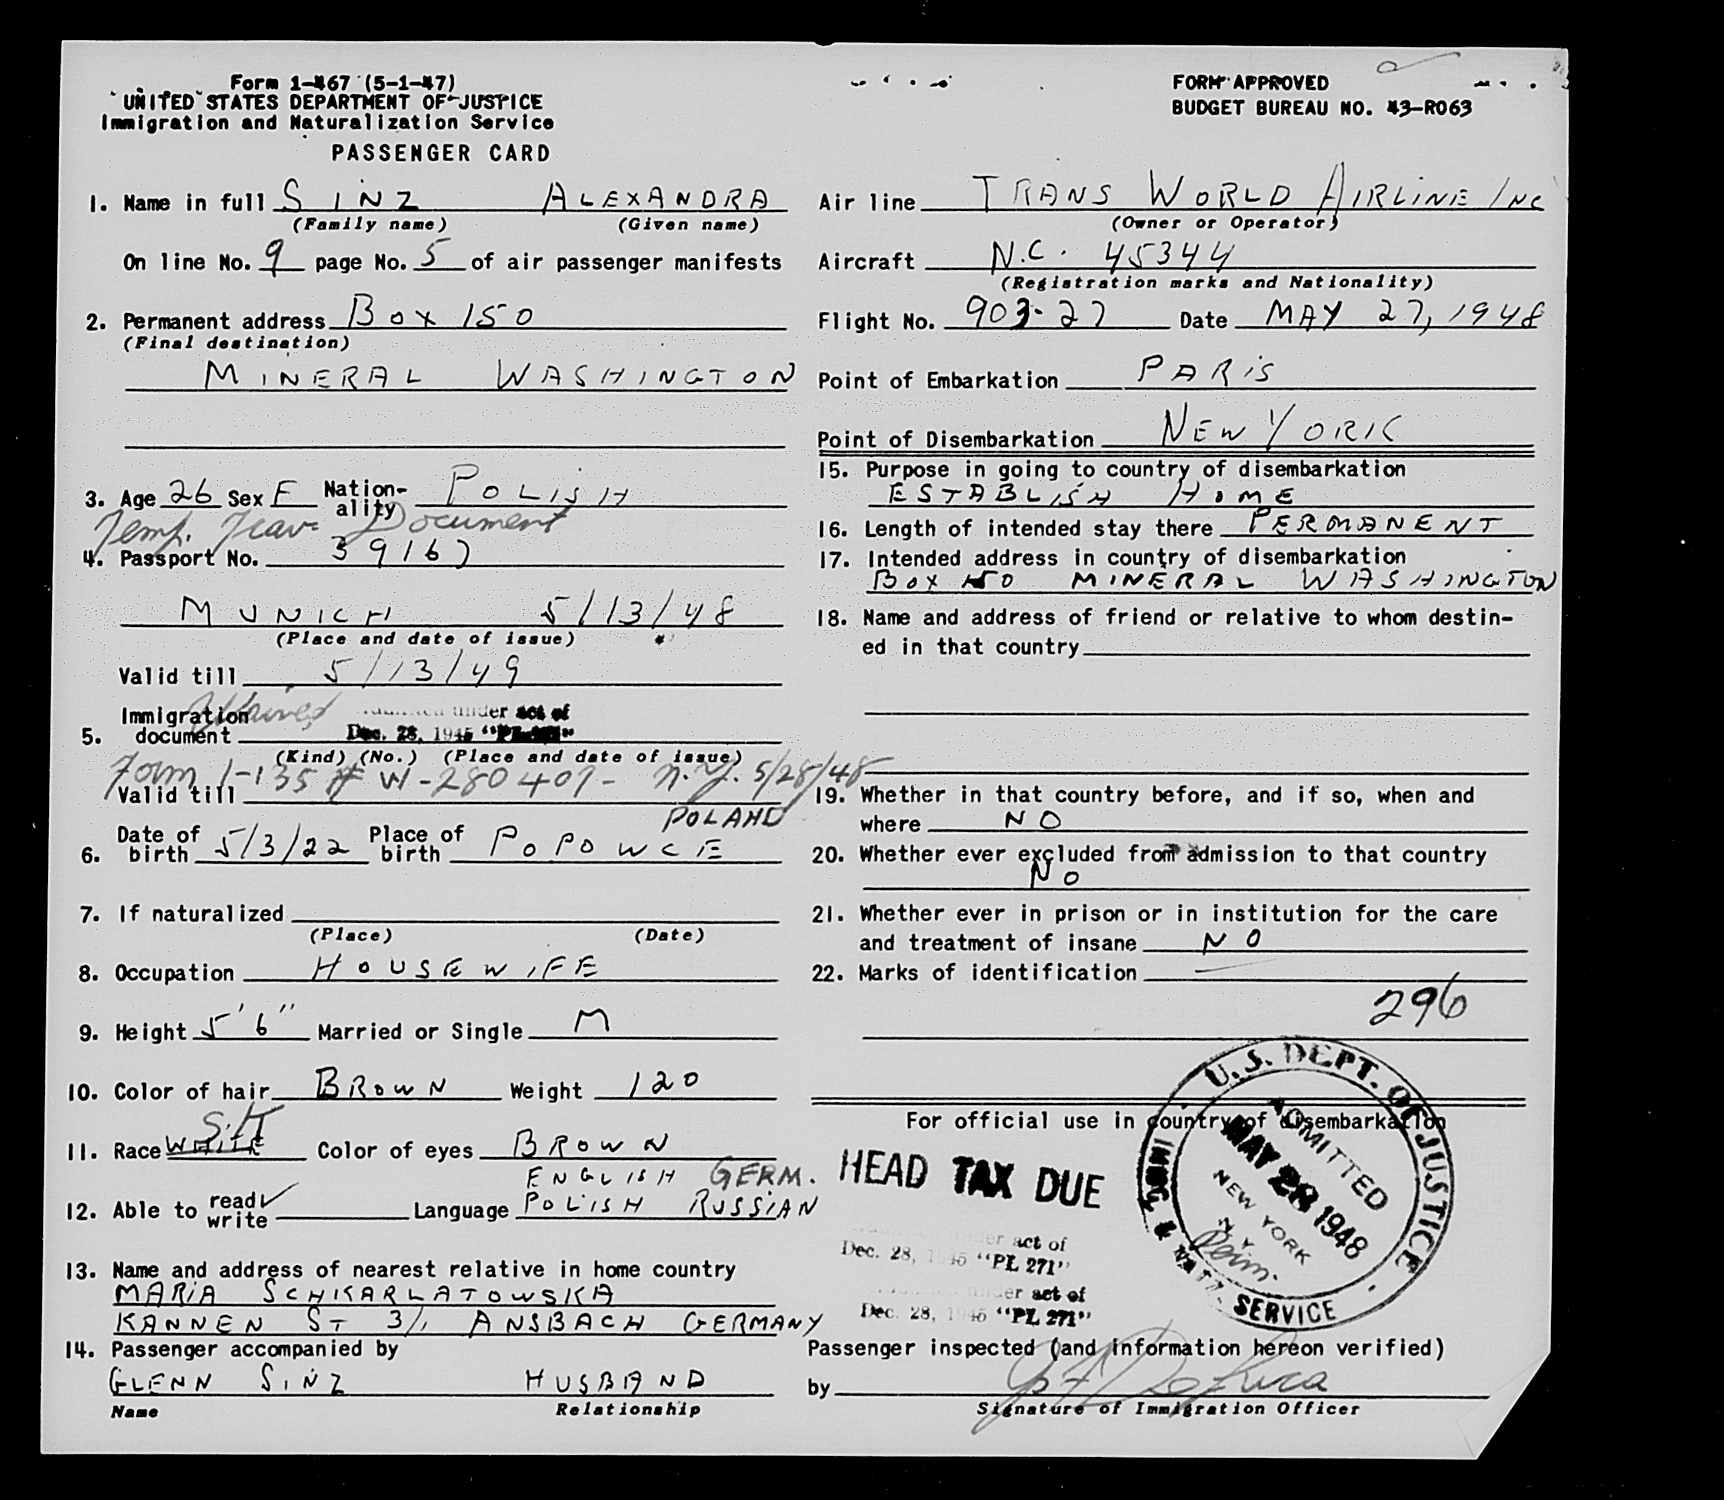 Form I-467 (5-1-47)
UNITED STATES DEPARTMENT OF JUSTICE
Immigration and Naturalization Service
PASSENGER CARD
FORM APPROVED
BUDGET BUREAU NO. 43-R063
1. Name in full SINZ ALEXANDRA
(Family name) (Given name)
On line No. 9 page No. 5 of air passenger manifests
2. Permanent address BOX 150
(Final destination)
MINERAL WASHINGTON
3. Age 26 Sex F Nation-ality POLISH
Temp. Trav. Document
4. Passport No. 39167
MUNICH 5/13/48
(Place and date of issue)
Valid till 5/13/49
5. Immigration document under act of
Dec. 28, 1945 "PL 271"
(Kind) (No.) (Place and date of issue)
Form I-135 # W-280407- N.Y. 5/28/48
Valid till
POLAND
6. Date of birth 5/3/22 Place of birth POPOWCE
7. If naturalized
(Place) (Date)
8. Occupation HOUSEWIFE
9. Height 5'6" Married or Single M
10. Color of hair BROWN Weight 120
11. Race WHITE Color of eyes BROWN
ENGLISH GERM.
12. Able to read ✓ write Language POLISH RUSSIAN
13. Name and address of nearest relative in home country
MARIA SCHKARLATOWSKA
KANNEN ST 3/1 ANSBACH GERMANY
14. Passenger accompanied by
GLENN SINZ HUSBAND
Name Relationship
Air line TRANS WORLD AIRLINE INC
(Owner or Operator)
Aircraft N.C. 45344
(Registration marks and Nationality)
Flight No. 903-27 Date MAY 27, 1948
Point of Embarkation PARIS
Point of Disembarkation NEW YORK
15. Purpose in going to country of disembarkation
ESTABLISH HOME
16. Length of intended stay there PERMANENT
17. Intended address in country of disembarkation
BOX 150 MINERAL WASHINGTON
18. Name and address of friend or relative to whom destin-
ed in that country
19. Whether in that country before, and if so, when and
where NO
20. Whether ever excluded from admission to that country
NO
21. Whether ever in prison or in institution for the care
and treatment of insane NO
22. Marks of identification —
296
For official use in country of disembarkation
HEAD TAX DUE
act of
Dec. 28, 1945 "PL 271"
under act of
Dec. 28, 1945 "PL 271"
U.S. DEPT. OF JUSTICE
IMMI. & NATZ. SERVICE
ADMITTED
MAY 28 1948
NEW YORK
N.Y.
Passenger inspected (and information hereon verified)
by
Signature of Immigration Officer